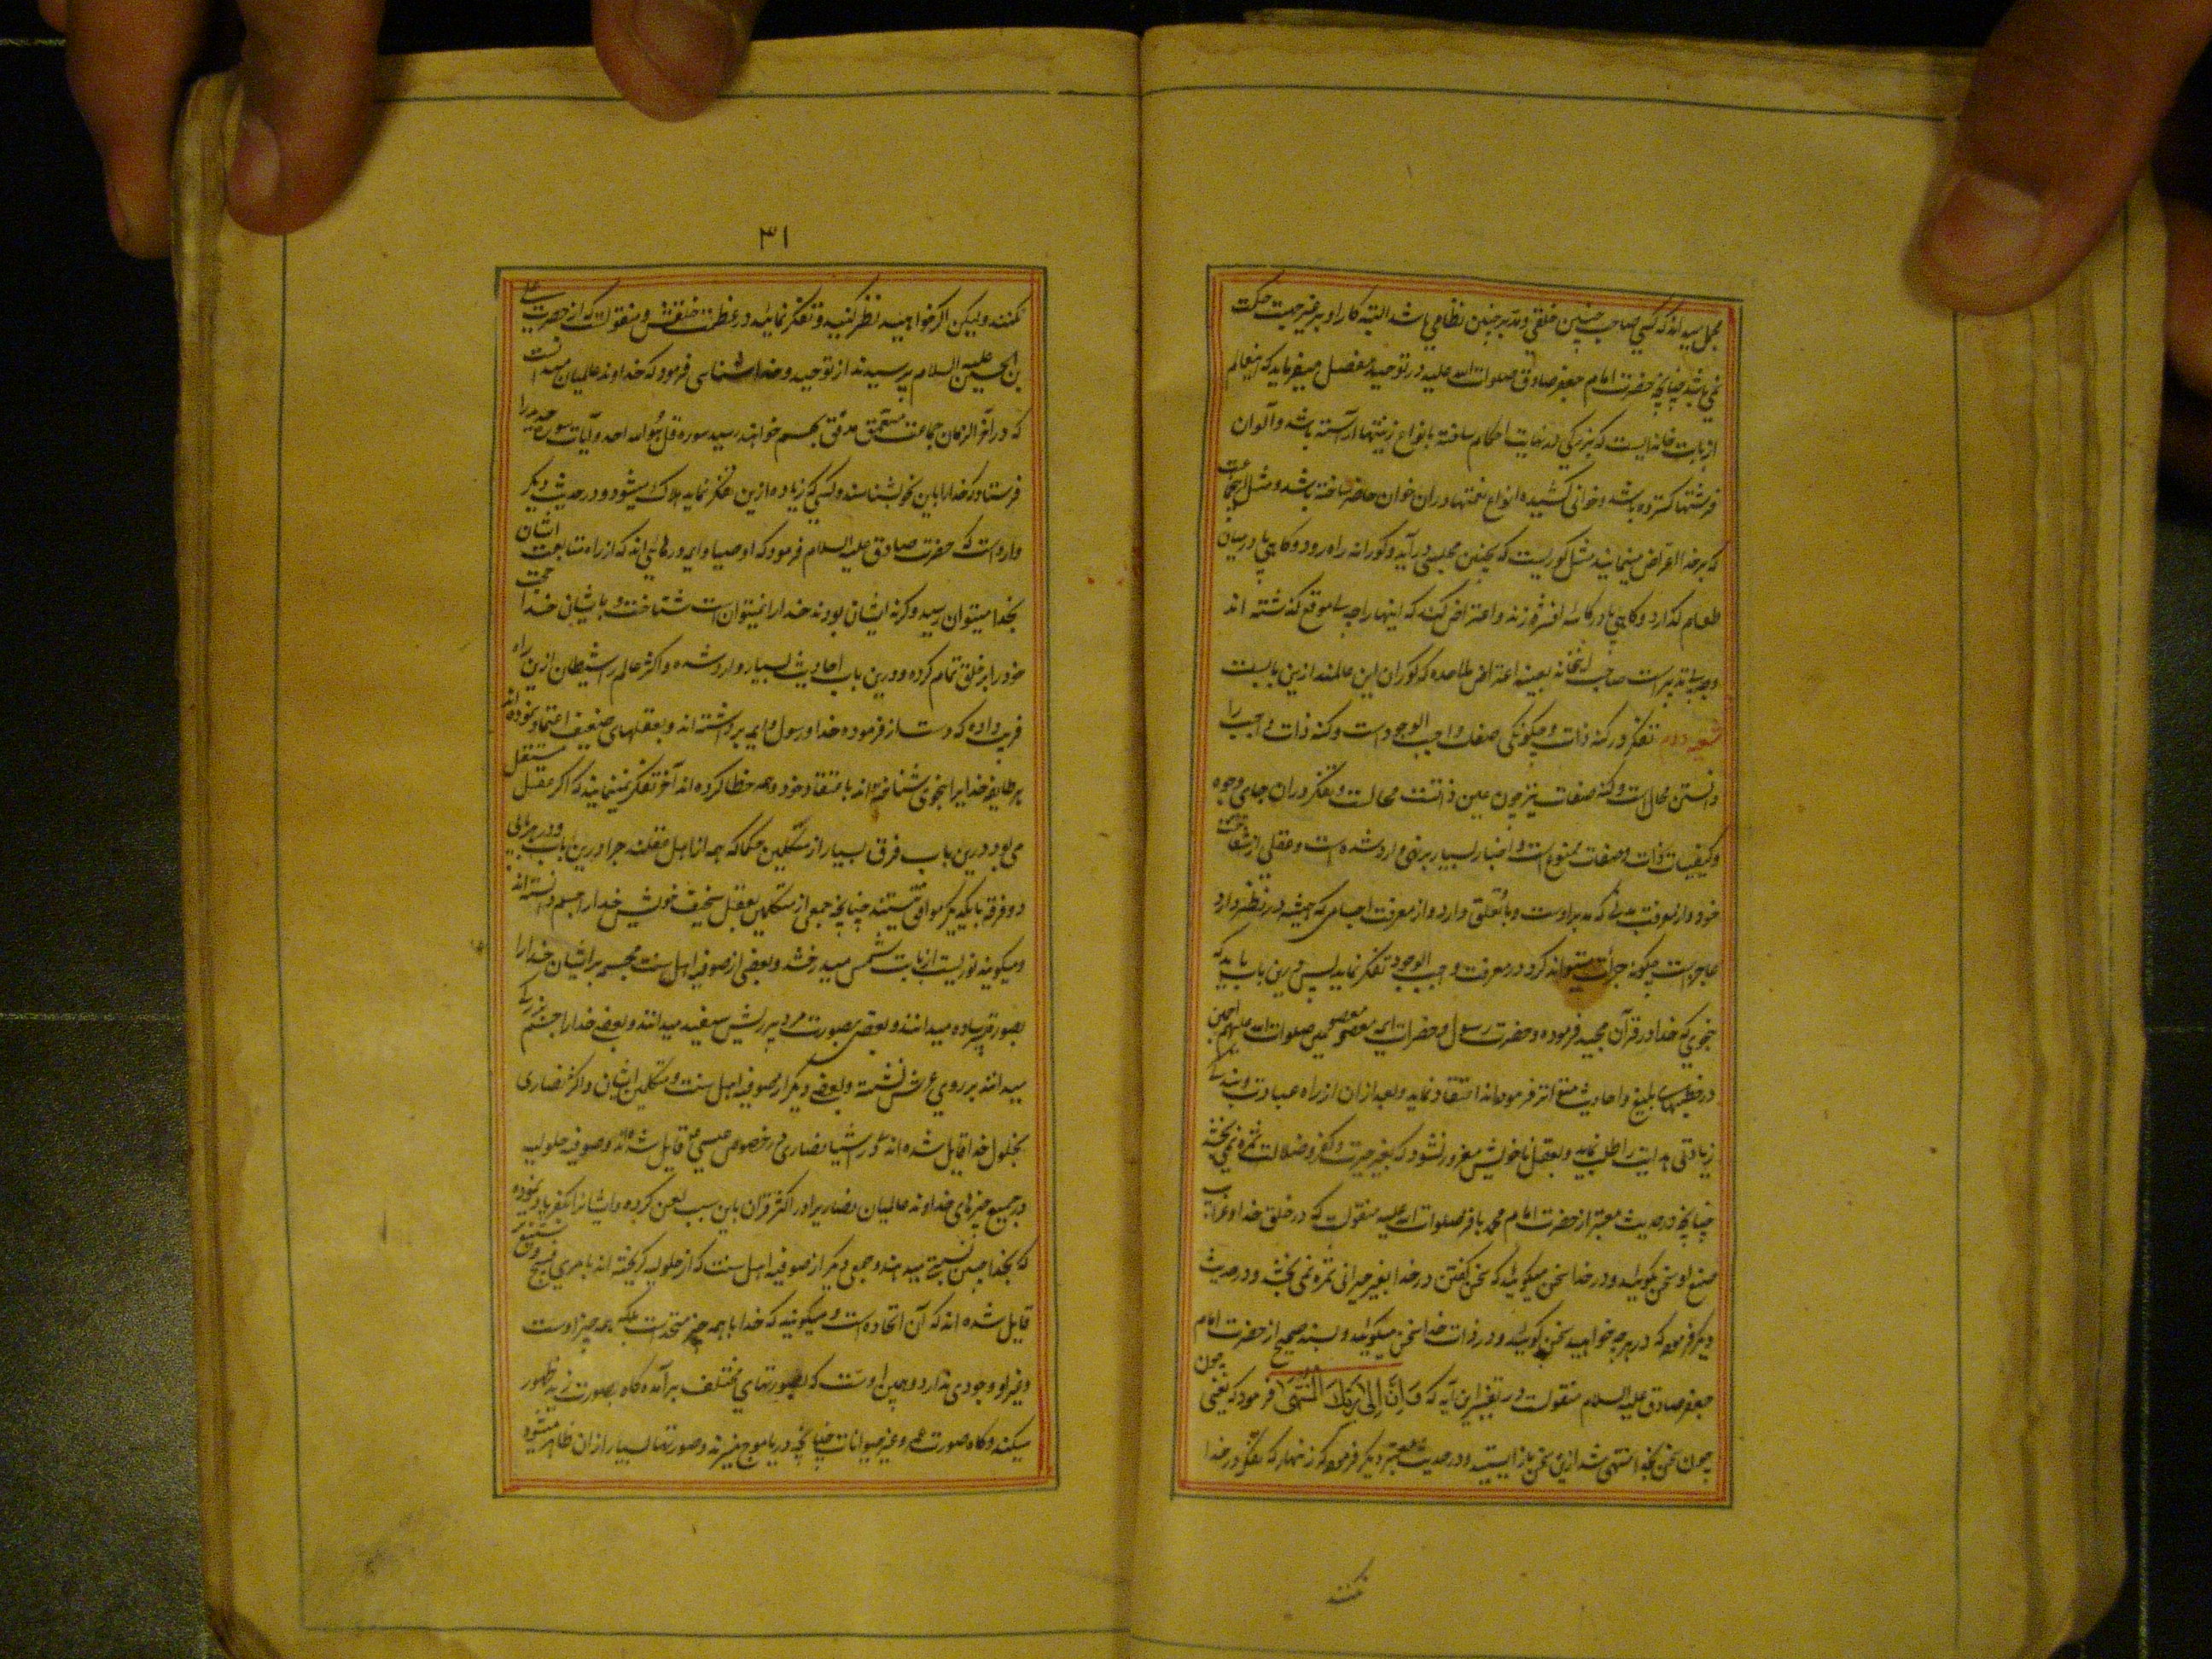 مجمل میداند که کسی صاحب چنین خلقی و تدبیر چنین نظامی باشد البته کار او بر غیر جهت حکمت
نمی باشد چنانچه حضرت امام جعفر صادق صلوات الله علیه در توحید مفضل میفرماید که اینعالم
از بابت خانه ایست که بزرگی در نهایت احکام ساخته بانواع زینتها آراسته باشد و الوان
فرشتها گسترده باشد و خوانی کشیده انواع نعمتها در ان خوان حاضر ساخته باشد و مثل اینجماعت
که بر خدا اعتراض مینمایند مثل کوریست که بچنین مجلسی در آید و کورانه راه رود و گاهی پا در میان
طعام گذارد و گاهی پا در کاسه افشره زند و اعتراض کند که اینها را چرا بی موقع گذاشته اند
و چه بی تدبیر است صاحب اینخانه بعینه اعتراض ملاحده که کوران این عالمند ازین بابست
دوم تفکر در کنه ذات و چگونگی صفات واجب الوجود است و کنه ذات واجب را
دانستن محال است و کنه صفات نیز چون عین ذاتست محالست و تفکر در ان جای وجوه
و کیفیات ذات و صفات ممنوع است و اخبار بسیار برنهی وارد شده است و عقلی از شناخت
خود و از معرفت بدنی که مدبر اوست و با او تعلق دارد و از معرفت اجسامی که همیشه در نظر دارد
عاجز است چگونه جرأت میتواند کرد در معرفت واجب الوجود تفکر نماید پس درین باب باید که
بنحوی که خدا در قرآن مجید فرموده و حضرت رسول و حضرات ایمه معصومین صلوات الله علیهم اجمعین
در خطبهای بلیغ و احادیث متواتر فرموده اند اعتقاد نماید و بعد از ان از راه عبادت و بندگی
زیادتی هدایت را طلب نماید و بعقل ناخویش مغرور نشود که بغیر حیرت و کفر و ضلالت ثمره نمی بخشد
چنانچه در حدیث معتبر از حضرت امام محمد باقر صلوات الله علیه منقولست که در خلق خدا و غرایب
صنع او سخن بگوئید و در خدا سخن مگوئید که سخن گفتن در خدا بغیر حیرانی ثمره نمی بخشد و در حدیث
دیگر فرمود که در هر چه خواهید سخن بگوئید و در ذات خدا سخن مگوئید و بسند صحیح از حضرت امام
جعفر صادق علیه السلام منقولست در تفسیر این آیه که وَاَنَّ اِلٰی رَبِّكَ الْمُنْتَهٰی فرمود که یعنی چون
چون سخن بخدا منتهی شد ازین سخن باز ایستید و در حدیث معتبر دیگر فرمود که زنهار که تفکر در خدا
مکنید
۳۱
مکنید ولیکن اگر خواهید نظر کنید و تفکر نمائید در عظمت خلقش و منقولست که از حضرت علی
بن الحسین علیه السلام پرسیدند از توحید و خداشناسی فرمود که خداوند عالمیان میدانست
که در آخر الزمان جماعت متعمق مدقق بهم خواهند رسید سوره قل هو الله احد و آیات سوره حدید را
فرستاد که خدا را باین نحو بشناسند و کسی که زیاده ازین تفکر نماید هلاک میشود و در حدیث دیگر
وارد است که حضرت صادق علیه السلام فرمود که اوصیاء ایشان درگاهی اند که از راه متابعت
بخدا میتوان رسید و اگر نه ایشان بودند خدا را نمیتوانست شناخت و بایشان خدا حجت
خود را بر خلق تمام کرده و درین باب احادیث بسیار وارد شده و اکثر عالم را شیطان ازین راه
فریب داده که دست از فرموده خدا و رسول و ایمه برداشته اند و بعقلهای ضعیف اعتماد نموده اند
هر طایفه خدا را بنحوی شناخته اند باعتقاد خود و همه خطا کرده اند آخر تفکر نمینمایند که اگر عقل مستقل
می بود درین باب فرق بسیار از متکلمین حکما که همه از اهل عقلند چرا درین باب و در هر بابی
دو فرقه با یکدیگر موافق نیستند چنانچه جمعی از متکلمین بعقل سخیف خویش خدا را جسم دانسته اند
و میگویند نوریست از بابت شمس میدرخشد و بعضی از صوفیه اهل سنت و مجسمه ایشان خدا را
بصورت پسر ساده میدانند و بعضی بصورت مرد پیر ریش سفید میدانند و بعضی خدا را جسم بزرگی
میدانند بر روی عرش نشسته و بعضی دیگر از صوفیه اهل سنت و متکلمین ایشان و اکثر نصاری
بحلول خدا قایل شده اند در اشیا نصاری در خصوص عیسی قایل شده اند و صوفیه حلولیه
در جمیع چیزهای خداوند عالمیان نصاریرا در اکثر قرآن باین سبب لعن کرده و ایشانرا بکفر یاد نموده
که بخدا چنین نسبتی میدهند و جمعی دیگر از صوفیه اهل سنت که از حلولیه گریخته اند بامری قبیح تر
قایل شده اند که آن اتحاد است و میگویند که خدا با همه چیز متحد است بلکه همه چیز اوست
و غیر او وجودی ندارد و همین اوست که بصورتهای مختلف بر آمده گاه بصورت زید ظهور
میکند و گاه صورت عمرو و غیر حیوانات چنانچه دریا موج میزند و صورتها بسیار از ان ظاهر میشود